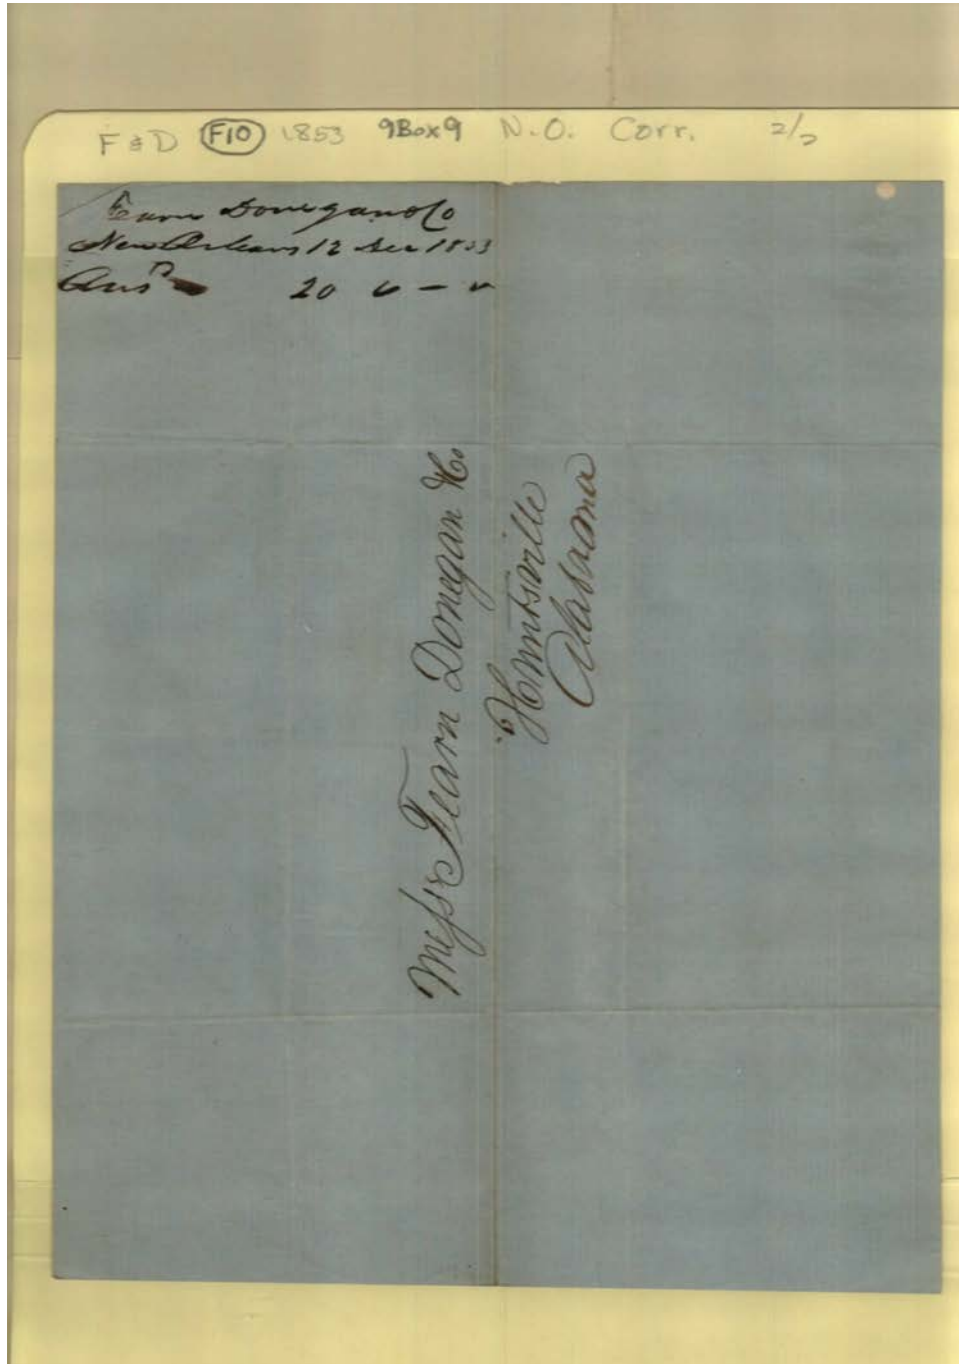 F & D F10 1853 9Box9 N.O. Corr. 2/2
Fearn Donegan & Co
New Orleans 12 Dec 1853
Ansd 20 " — "
Messrs Fearn Donegan & Co.
Huntsville
Alabama